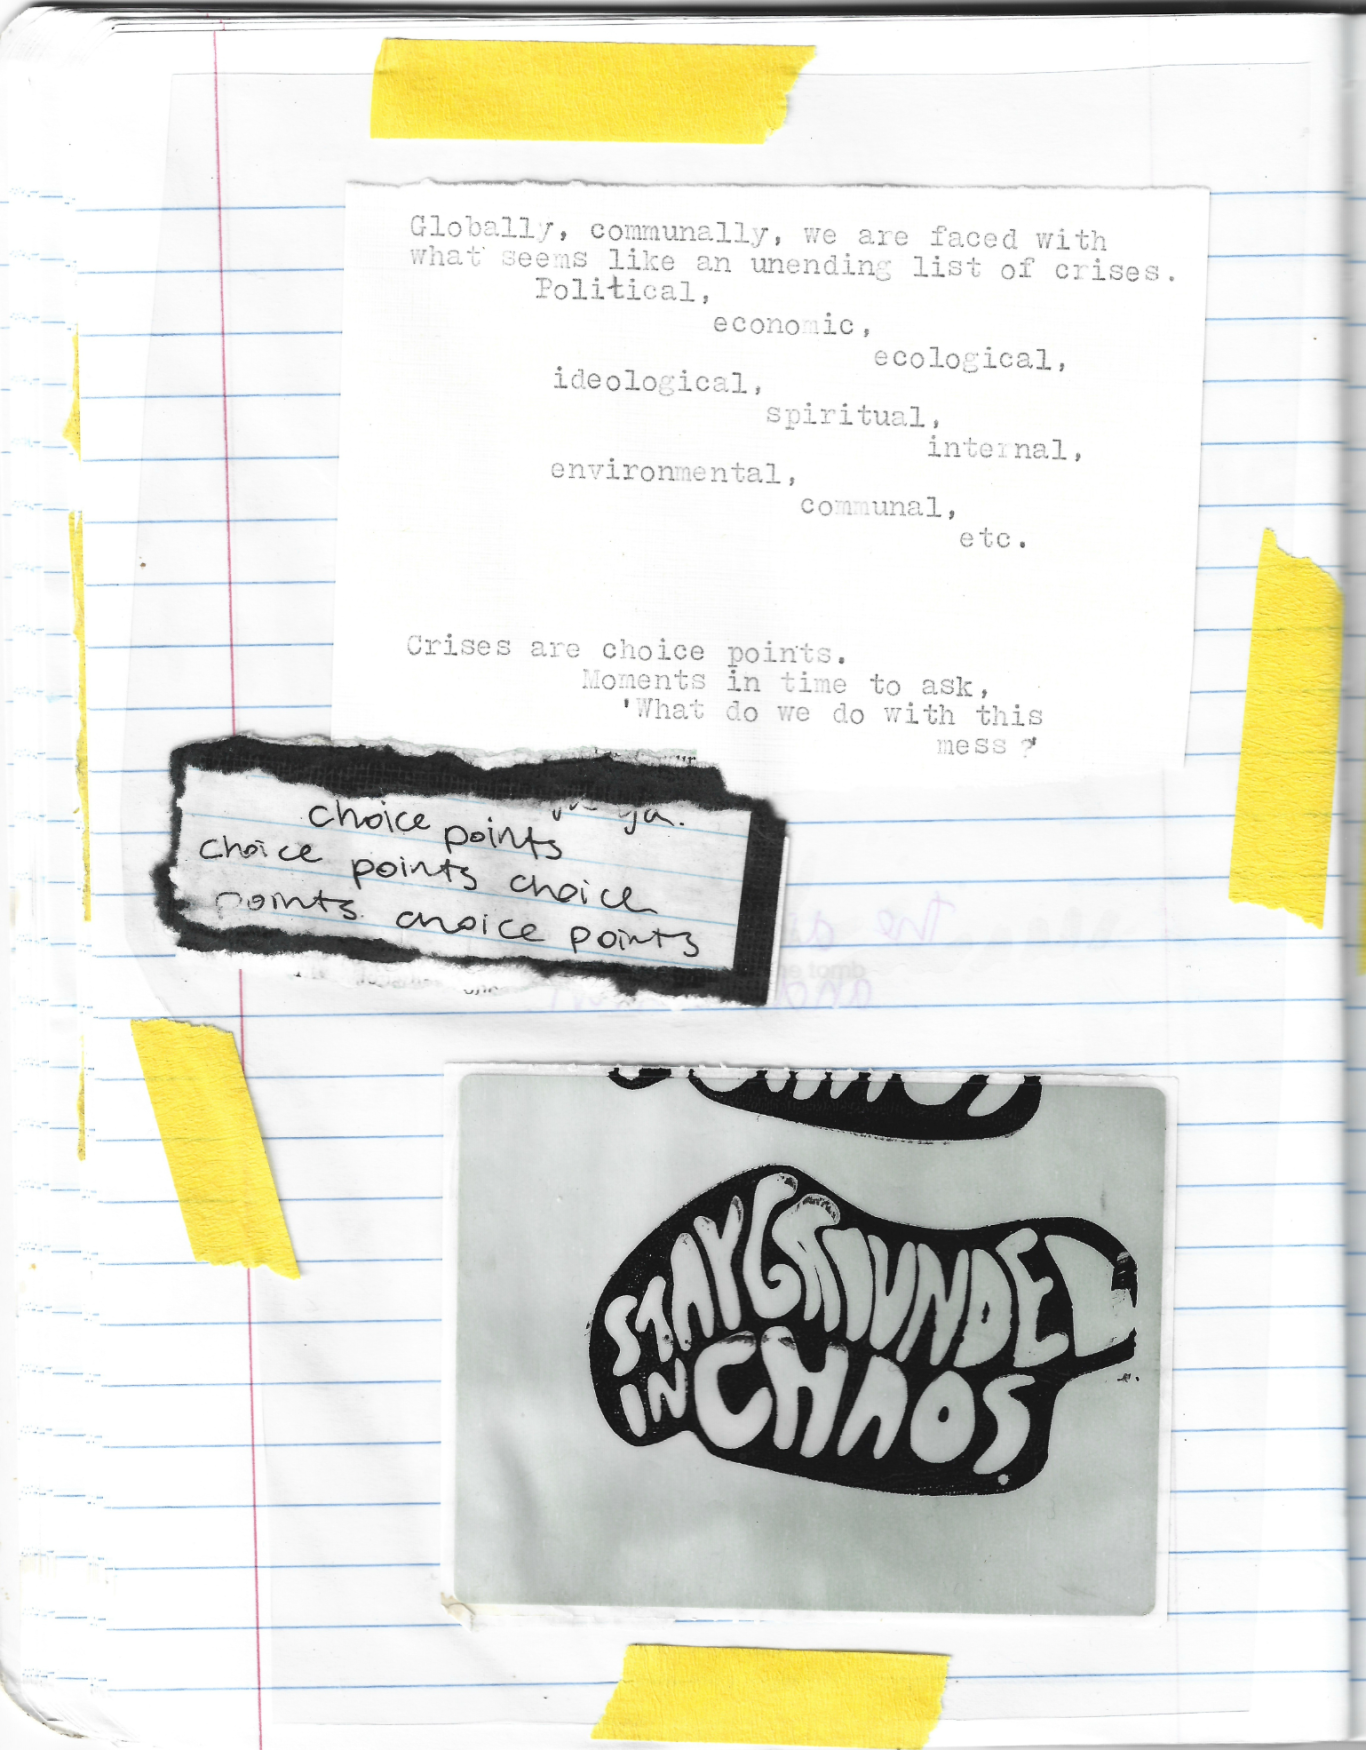 Globally, communally, we are faced with
what seems like an unending list of crises.
Political,
economic,
ecological,
ideological,
spiritual,
internal,
environmental,
communal,
etc.
Crises are choice points.
Moments in time to ask,
'What do we do with this
mess?'
choice points
choice points choice
points choice points
the
e tomb
and
STAY GROUNDED
IN CHAOS.